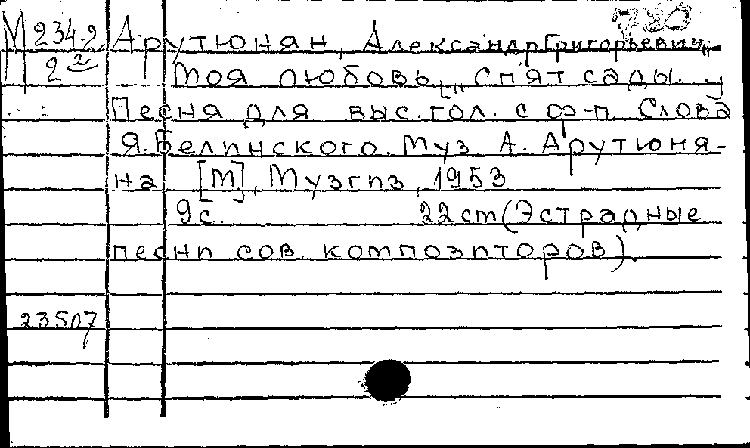 М 2342 Арутюнян, Александр Григорьевич.
2² Моя любовь, „Спят сады..."
Песня для выс. гол. с ф-п. Слова
Я. Белинского. Муз. А. Арутюня-
на [М], Музгиз, 1953
9 с. 22 cm (Эстрадные
песни сов. композиторов).
23507